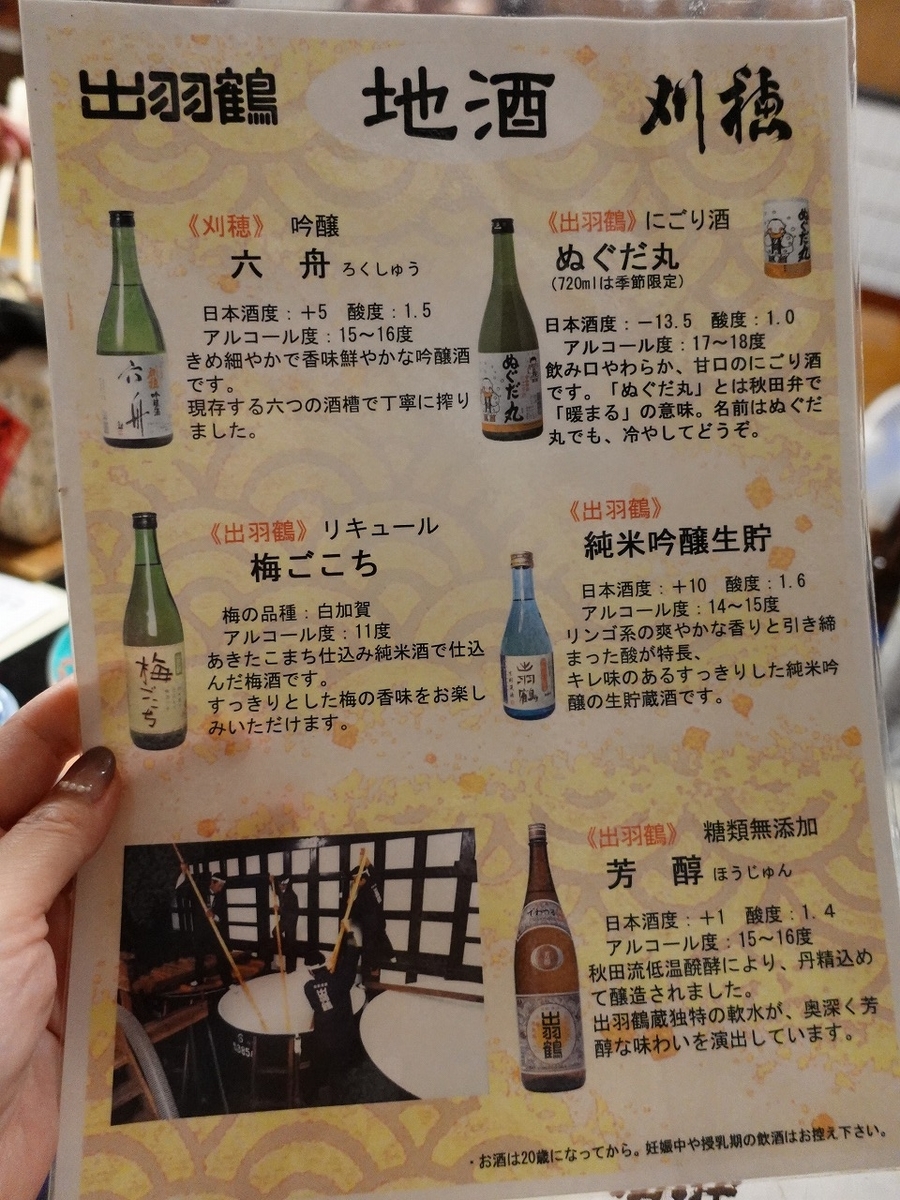 出羽鶴
地酒
刈穂
《刈穂》 吟醸
六 舟 ろくしゅう
日本酒度：＋5 酸度：1.5
アルコール度：15～16度
きめ細やかで香味鮮やかな吟醸酒
です。
現存する六つの酒槽で丁寧に搾り
ました。
六舟
吟醸酒
《出羽鶴》にごり酒
ぬぐだ丸
(720mlは季節限定)
日本酒度：－13.5 酸度：1.0
アルコール度：17～18度
飲み口やわらか、甘口のにごり酒
です。「ぬぐだ丸」とは秋田弁で
「暖まる」の意味。名前はぬぐだ
丸でも、冷やしてどうぞ。
ぬぐだ丸
ぬぐだ丸
《出羽鶴》リキュール
梅ごこち
梅の品種：白加賀
アルコール度：11度
あきたこまち仕込み純米酒で仕込
んだ梅酒です。
すっきりとした梅の香味をお楽し
みいただけます。
梅ごこち
《出羽鶴》
純米吟醸生貯
日本酒度：＋10 酸度：1.6
アルコール度：14～15度
リンゴ系の爽やかな香りと引き締
まった酸が特長、
キレ味のあるすっきりした純米吟
醸の生貯蔵酒です。
出羽鶴
《出羽鶴》 糖類無添加
芳 醇 ほうじゅん
日本酒度：＋1 酸度：1.4
アルコール度：15～16度
秋田流低温醗酵により、丹精込め
て醸造されました。
出羽鶴蔵独特の軟水が、奥深く芳
醇な味わいを演出しています。
出羽鶴
・お酒は20歳になってから。妊娠中や授乳期の飲酒はお控え下さい。